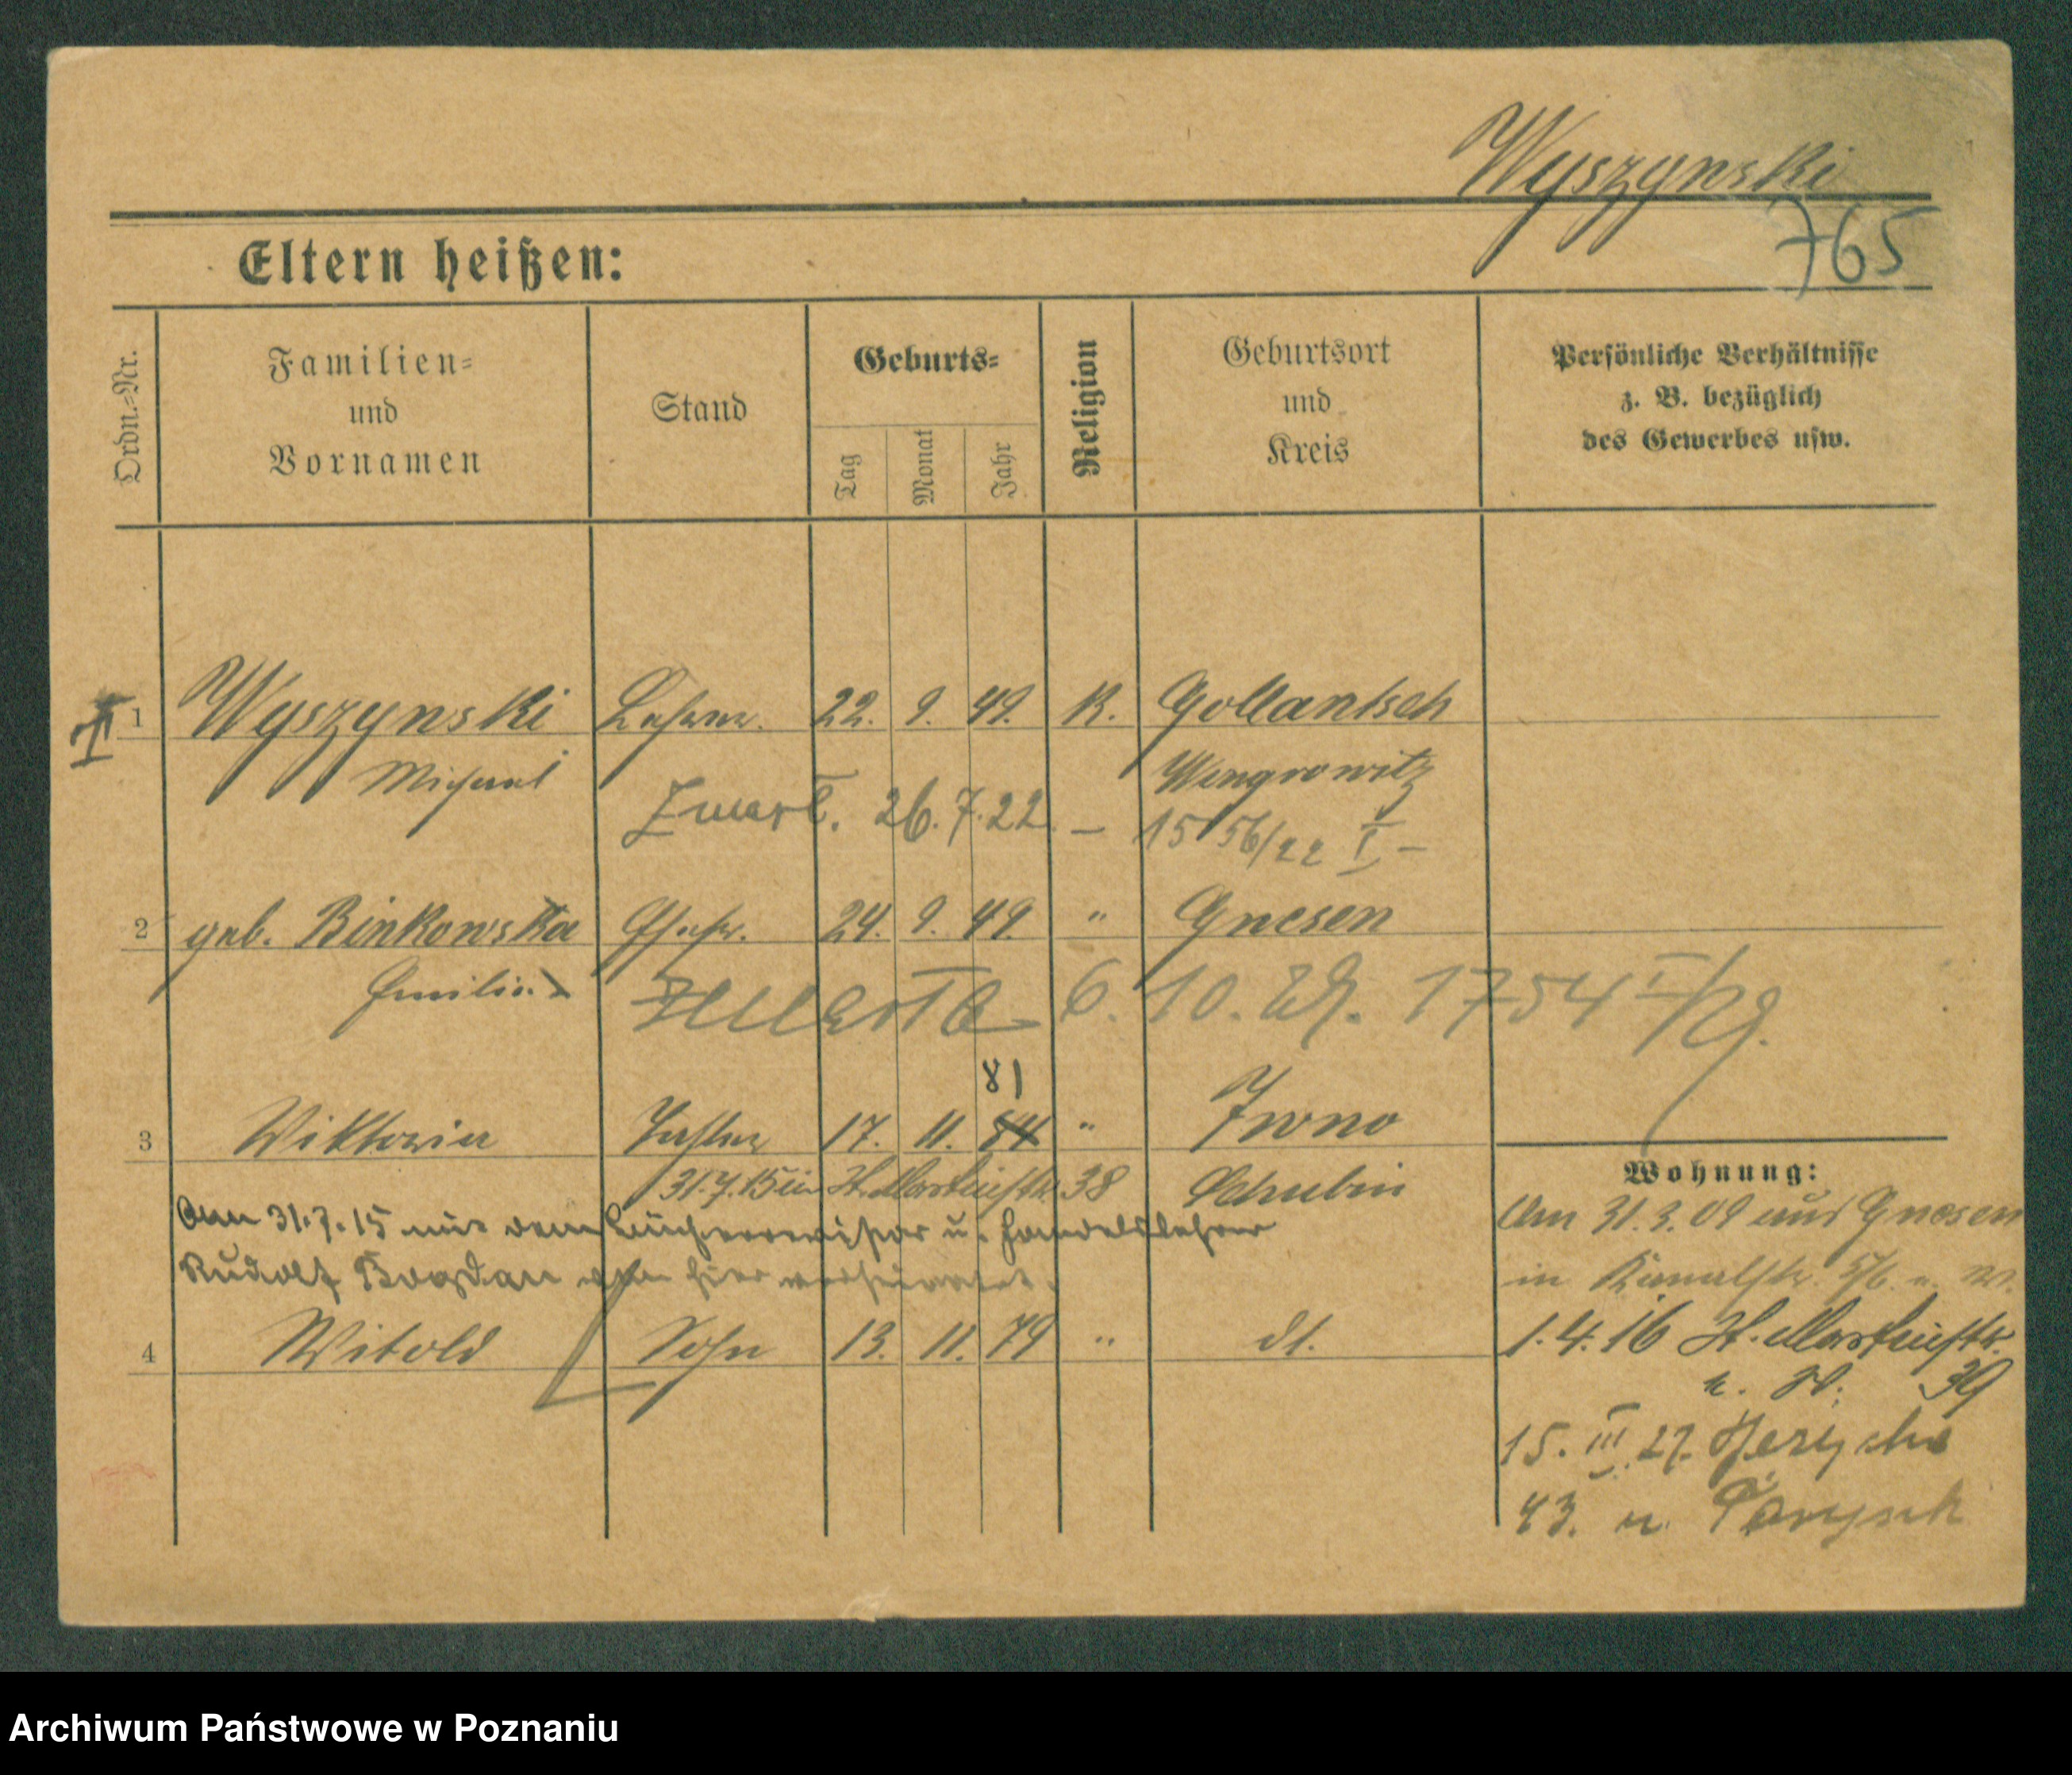 Wyszynski
765
Eltern heißen:
Ordn.=Nr.
Familien=
und
Vornamen
Stand
Geburts=
Tag
Monat
Jahr
Religion
Geburtsort
und
Kreis
Persönliche Verhältnisse
z. B. bezüglich
des Gewerbes usw.
I 1 Wyszynski Lehrer. 22. 9. 49. K. Gollantsch
Michael Wongrowitz
Zmarł. 26.7.22. – 1556/22 I –
2 geb. Binkowska Ehefr. 24. 9. 49. " Gnesen
Emilie
Zmarła 6. 10. 29. 1754 I/29.
81
3 Viktoria Tochter 17. 11. 84 " Iwno
31.7.15 in 38 Schubin
Am 31.7.15 mit dem Bücherrevisor u. Handelslehrer
Rudolf Bogdan hier verheiratet.
4 Witold Sohn 13. 11. 79 " dt.
Wohnung:
Am 31.3.09 aus Gnesen
in Kanalstr.
1.4.16
39
15. III. 27.
43. u.
Archiwum Państwowe w Poznaniu